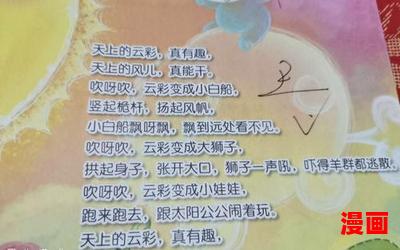 天上的云彩，真有趣，
天上的风儿，真能干。
吹呀吹，云彩变成小白船，
竖起桅杆，扬起风帆，
小白船飘呀飘，飘到远处看不见。
吹呀吹，云彩变成大狮子，
拱起身子，张开大口，狮子一声吼，吓得羊群都逃散。
吹呀吹，云彩变成小娃娃，
跑来跑去，跟太阳公公闹着玩。
天上的云彩，真有趣，
漫画